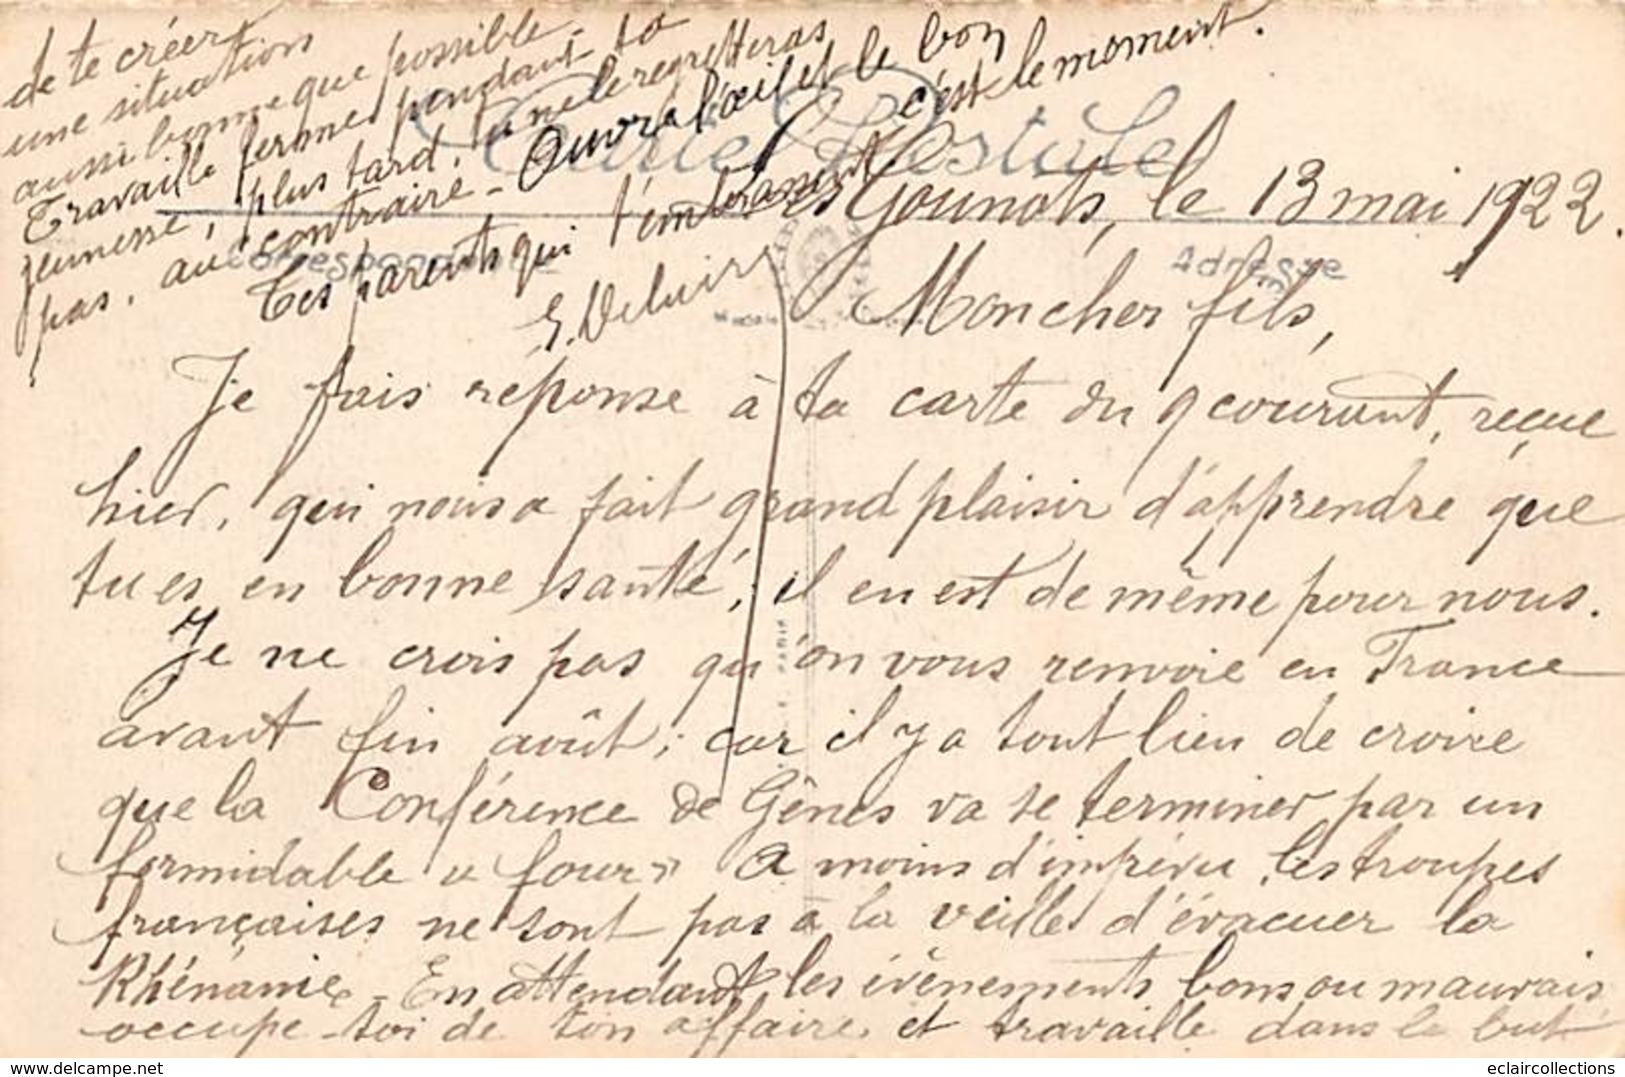 Carte Postale
Correspondance
Adresse
Les Gounots, le 13 mai 1922.
Mon cher fils,
Je fais réponse à ta carte du 9 courant, reçue
hier, qui nous a fait grand plaisir d'apprendre que
tu es en bonne santé, il en est de même pour nous.
Je ne crois pas qu'on vous renvoie en France
avant fin août; car il y a tout lieu de croire
que la Conférence de Gênes va se terminer par un
formidable « four » A moins d'imprévu, les troupes
françaises ne sont pas à la veille d'évacuer la
Rhénanie - En attendant les évènements bons ou mauvais
occupe-toi de ton affaire, et travaille dans le but
de te créer
une situation
aussi bonne que possible -
Travaille ferme pendant ta
jeunesse, plus tard, tu ne le regretteras
pas, au contraire - Ouvre l'œil et le bon
c'est le moment.
Tes parents qui t'embrassent
PARIS
delcampe.net
eclaircollections